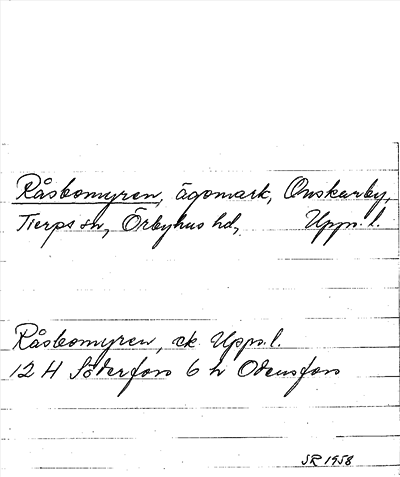 Råsbomyren, ägomark, Onskarby,
Tierps sn, Örbyhus hd, Uppn. l.
Råsbomyren, ek Uppn. l.
12 H Söderfors 6 h Odensfors
SR 1958